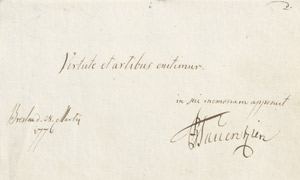 2.
Virtute et artibus enitimur.
in sui memoriam apposuit
Breslau d. 28. Martii
1776
Tauentzien